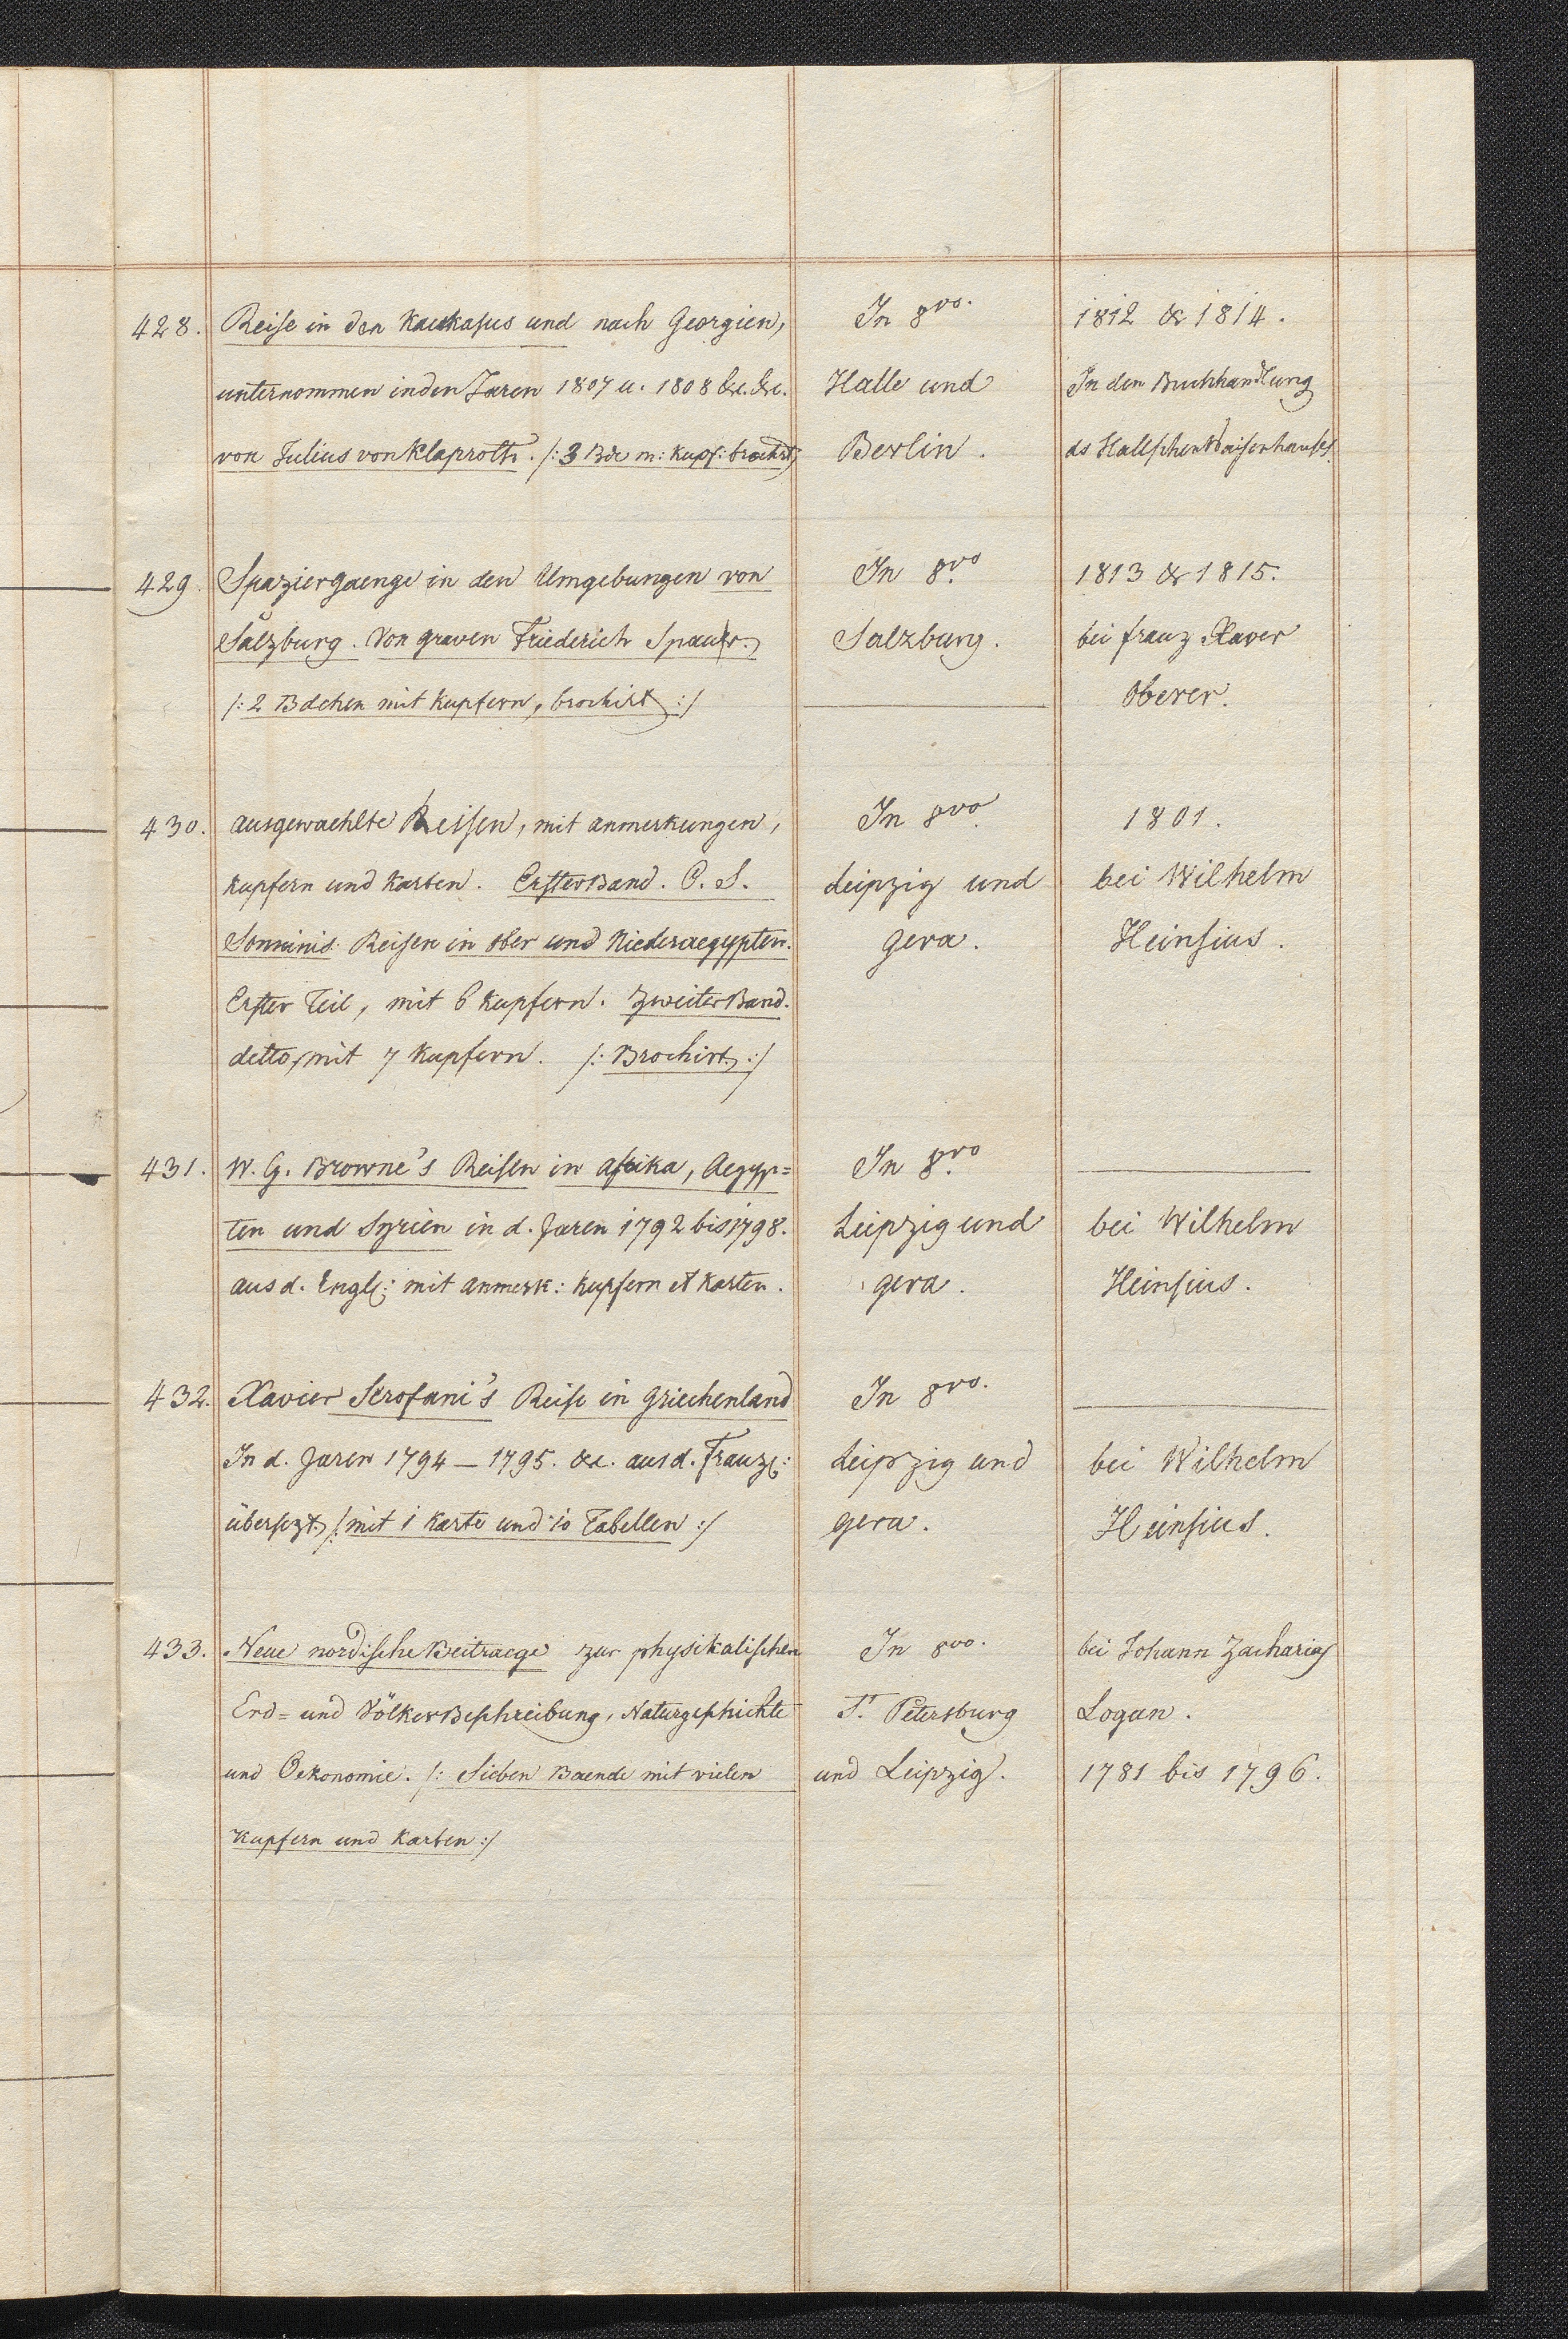 428. Reise in den Kaukasus und nach Georgien, In 8vo. 1812 & 1814.
unternommen in den Jaren 1807 u. 1808 &c. &c. Halle und In den Buchhandlung
von Julius von Klaproth. /: 3 Bde m: Kupf: brochirt Berlin. ds Hallschen Waisenhauses.
429. Spaziergaenge in den Umgebungen von In 8vo 1813 & 1815.
Salzburg. Von graven Friederich Spaur. Salzburg. bei franz Xaver
/: 2 Bdchen mit Kupfern, brochirt :/ Oberer.
430. ausgewaehlte Reisen, mit anmerkungen, In 8vo 1801.
Kupfern und Karten. Erster Band. C. S. Leipzig und bei Wilhelm
Sonninis Reisen in ober und Niederaegypten. gera. Heinsius.
Erster Teil, mit 6 Kupfern. Zweiter Band.
detto, mit 7 Kupfern. /: Brochirt :/
431. W. G. Browne's Reisen in afrika, Aegyp= In 8vo
ten und Syrien in d. Jaren 1792 bis 1798. Leipzig und bei Wilhelm
aus d. Engl: mit anmerk: Kupfern et Karten. gera. Heinsius.
432. Xavier Scrofani's Reise in griechenland In 8vo.
In d. Jaren 1794 – 1795. &c. aus d. Franz: Leipzig und bei Wilhelm
übersezt /: mit 1 Karte und 10 Tabellen :/ gera. Heinsius.
433. Neue nordische Beitraege zur physikalischen In 8vo. bei Johann Zacharias
Erd= und Völker Beschreibung, Naturgeschichte St. Petersburg Logan.
und Oekonomie. /: Sieben Baende mit vielen und Leipzig. 1781 bis 1796.
Kupfern und Karten :/